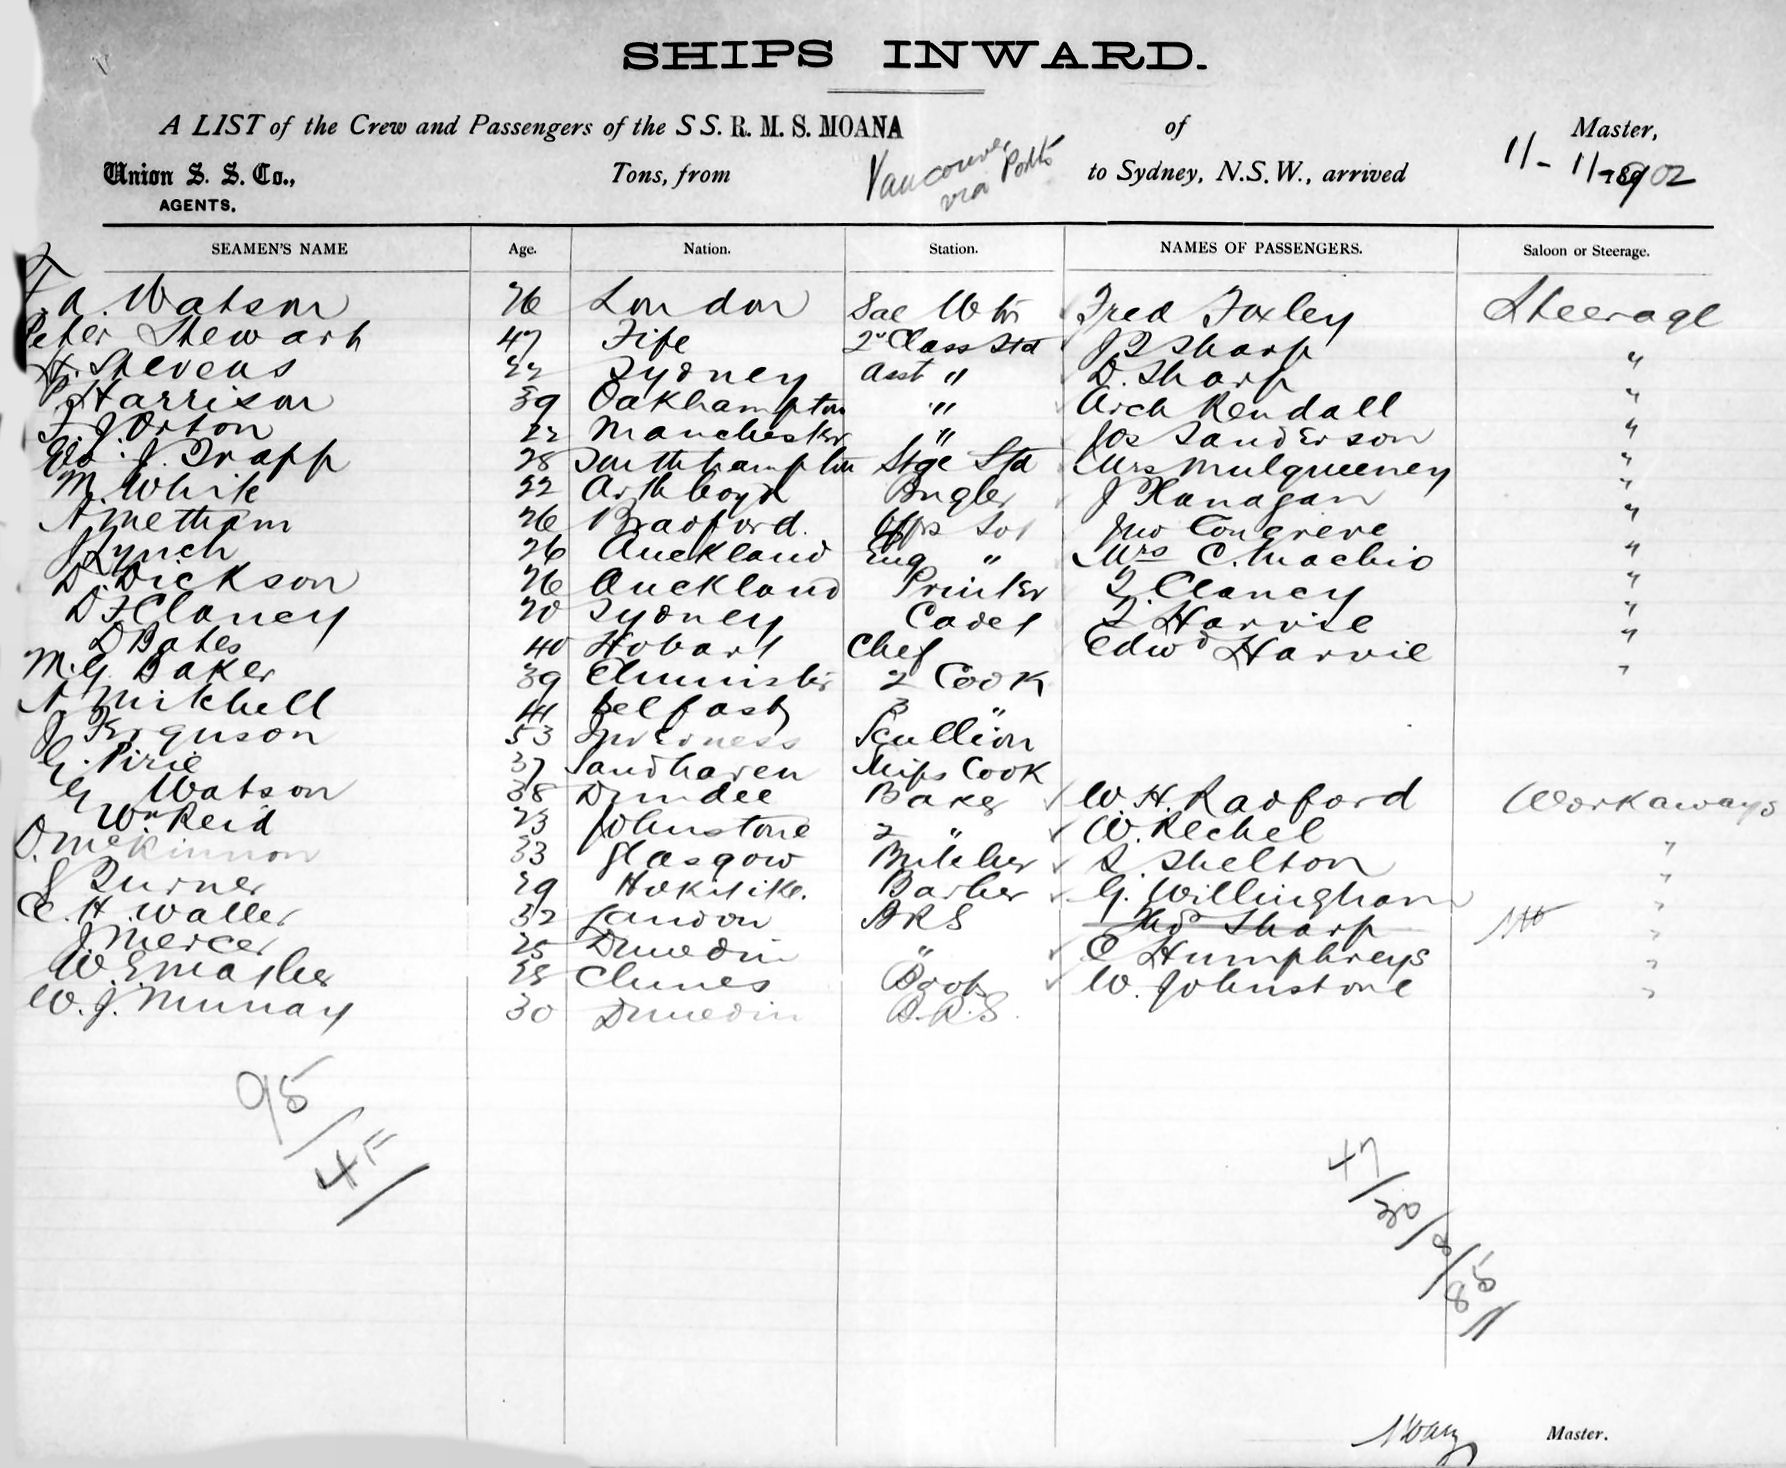 SHIPS INWARD.
A LIST of the Crew and Passengers of the SS. R. M. S. MOANA of Master,
Union S. S. Co., Tons, from Vancouver via Ports to Sydney, N.S.W., arrived 11-11-1902
AGENTS.
SEAMEN'S NAME Age. Nation. Station. NAMES OF PASSENGERS. Saloon or Steerage.
A. Watson 26 London Sal Wtr Fred Foxley Steerage
Peter Stewart 47 Fife 2nd Class Std J T Sharp "
H. Stevens 22 Sydney Asst " D. Sharp "
P Harrison 39 Oakhampton " Arch Rendall "
F J Orton 22 Manchester " Jos Sanderson "
Geo. J. Trapp 28 Southhampton Stge Std Mrs Mulqueeney "
M. White 22 Bugler J Flanagan "
A Metham 26 Bradford. Jno Congreve "
J Lynch 26 Auckland Eng " Mrs C. Machio "
D. Dickson 26 Auckland Printer T. Clancy "
D F Clancy 20 Sydney Cadet T Harvie "
D Bates 40 Hobart Chef Edwd Harvie "
M. G. Baker 39 2 Cook "
A Mitchell 41 Belfast 3 "
J Ferguson 53 Inverness Scullion
G. Pirie 37 Sandhaven Ships Cook
G Watson 38 Dundee Baker W. H. Radford Workaways
Wm Reid 23 Johnstone 2 " W. Rechel
D. McKinnon 33 Glasgow Butcher S. Shelton "
J Turner 29 Hokitika. Barber G. Willingham "
C. H. Waller 32 London ARS Thos Sharp "
J. Mercer 25 Dunedin " C Humphreys "
W. E. 28 Clunes W. Johnstone "
W. J. Murray 30 Dunedin B.R.S.
95
47
30
8
85
Master.